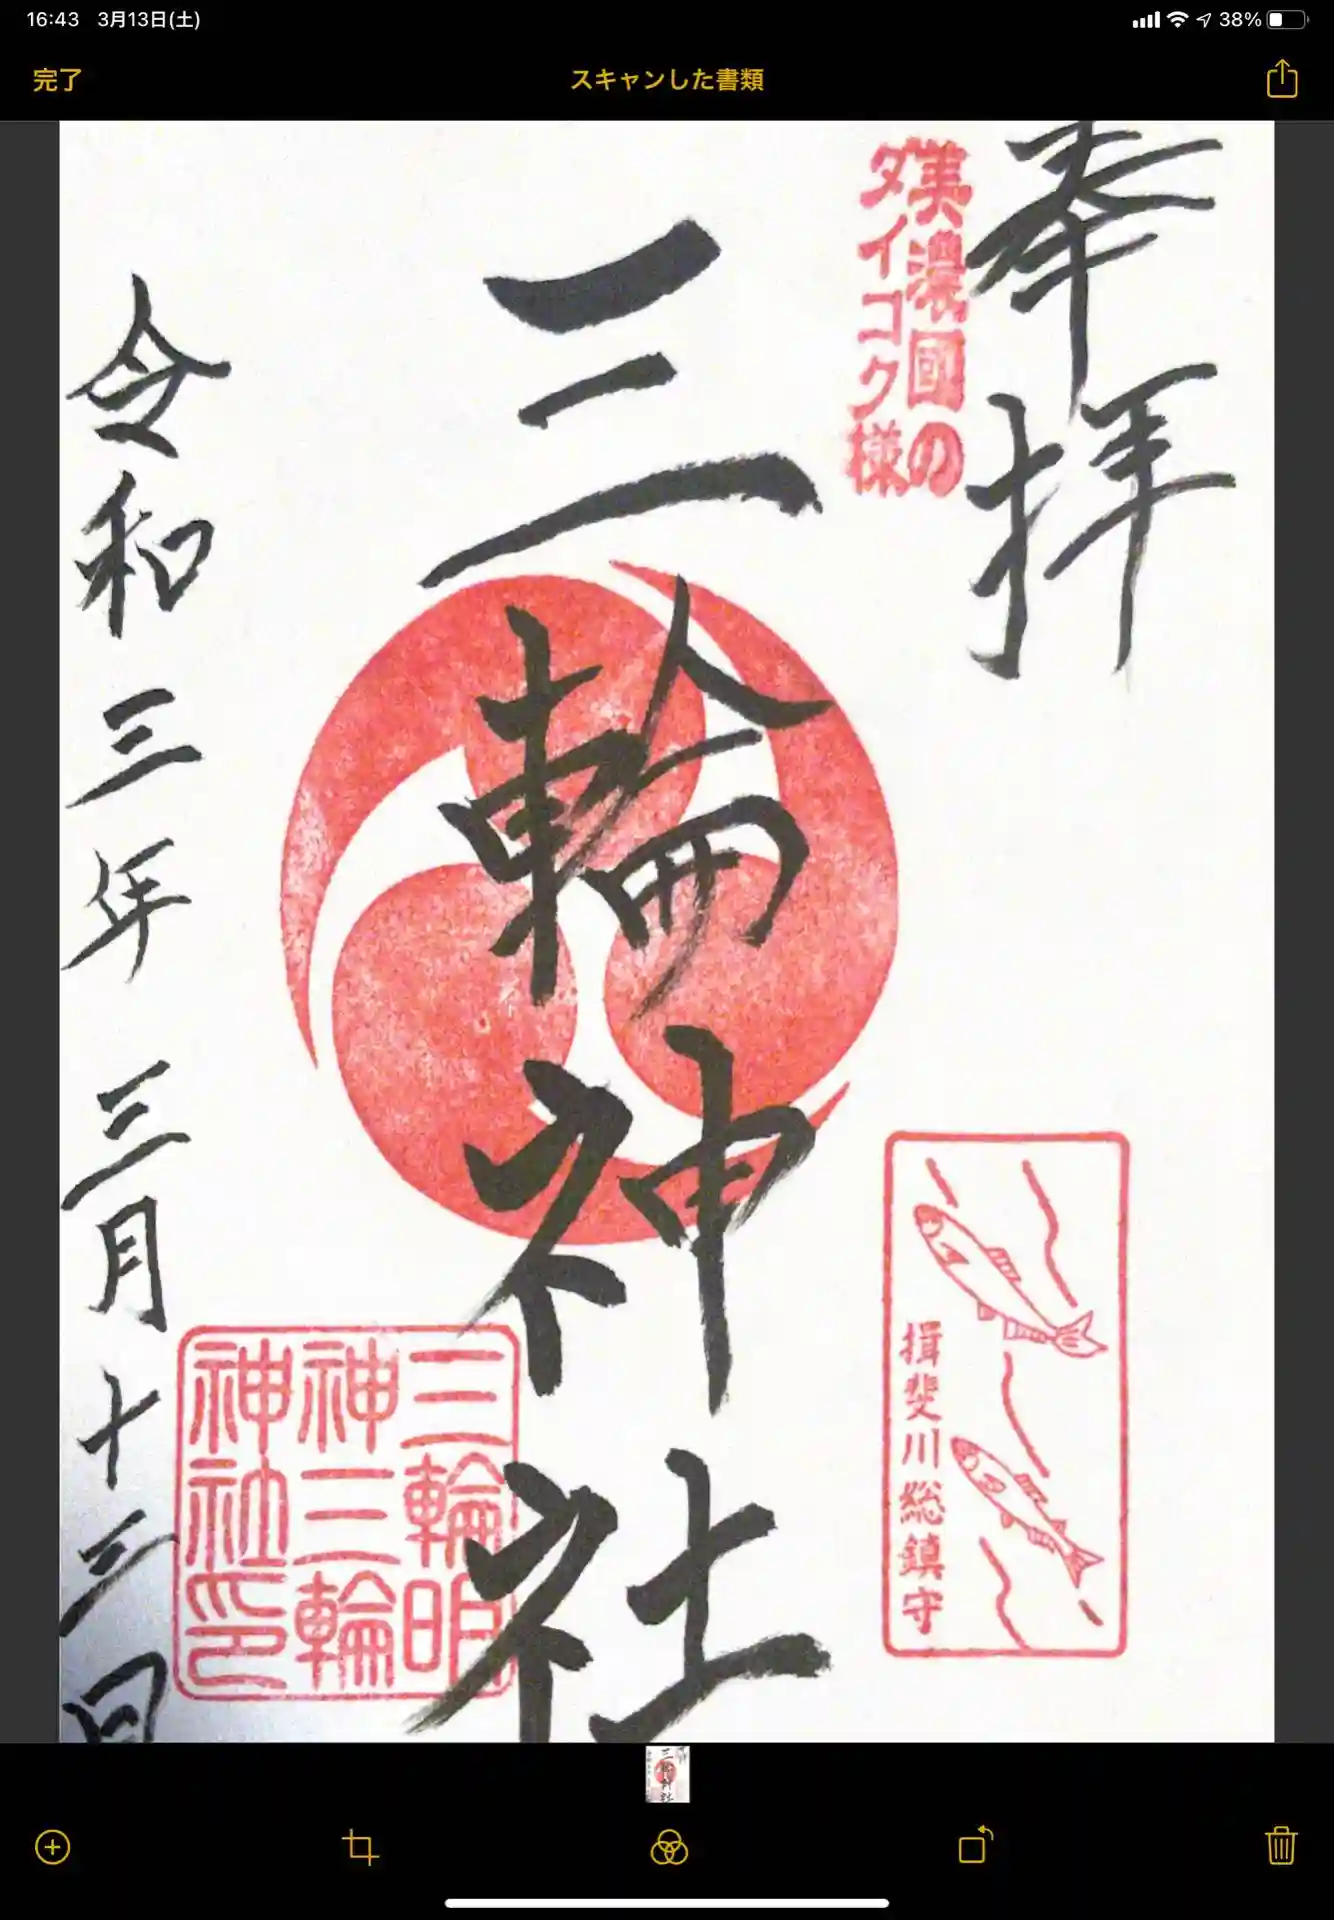 16:43 3月13日(土)
38%
完了
スキャンした書類
奉拝
美濃國の
ダイコク様
三輪神社
令和三年 三月十三日
三輪明
神三輪
神社印
揖斐川総鎮守